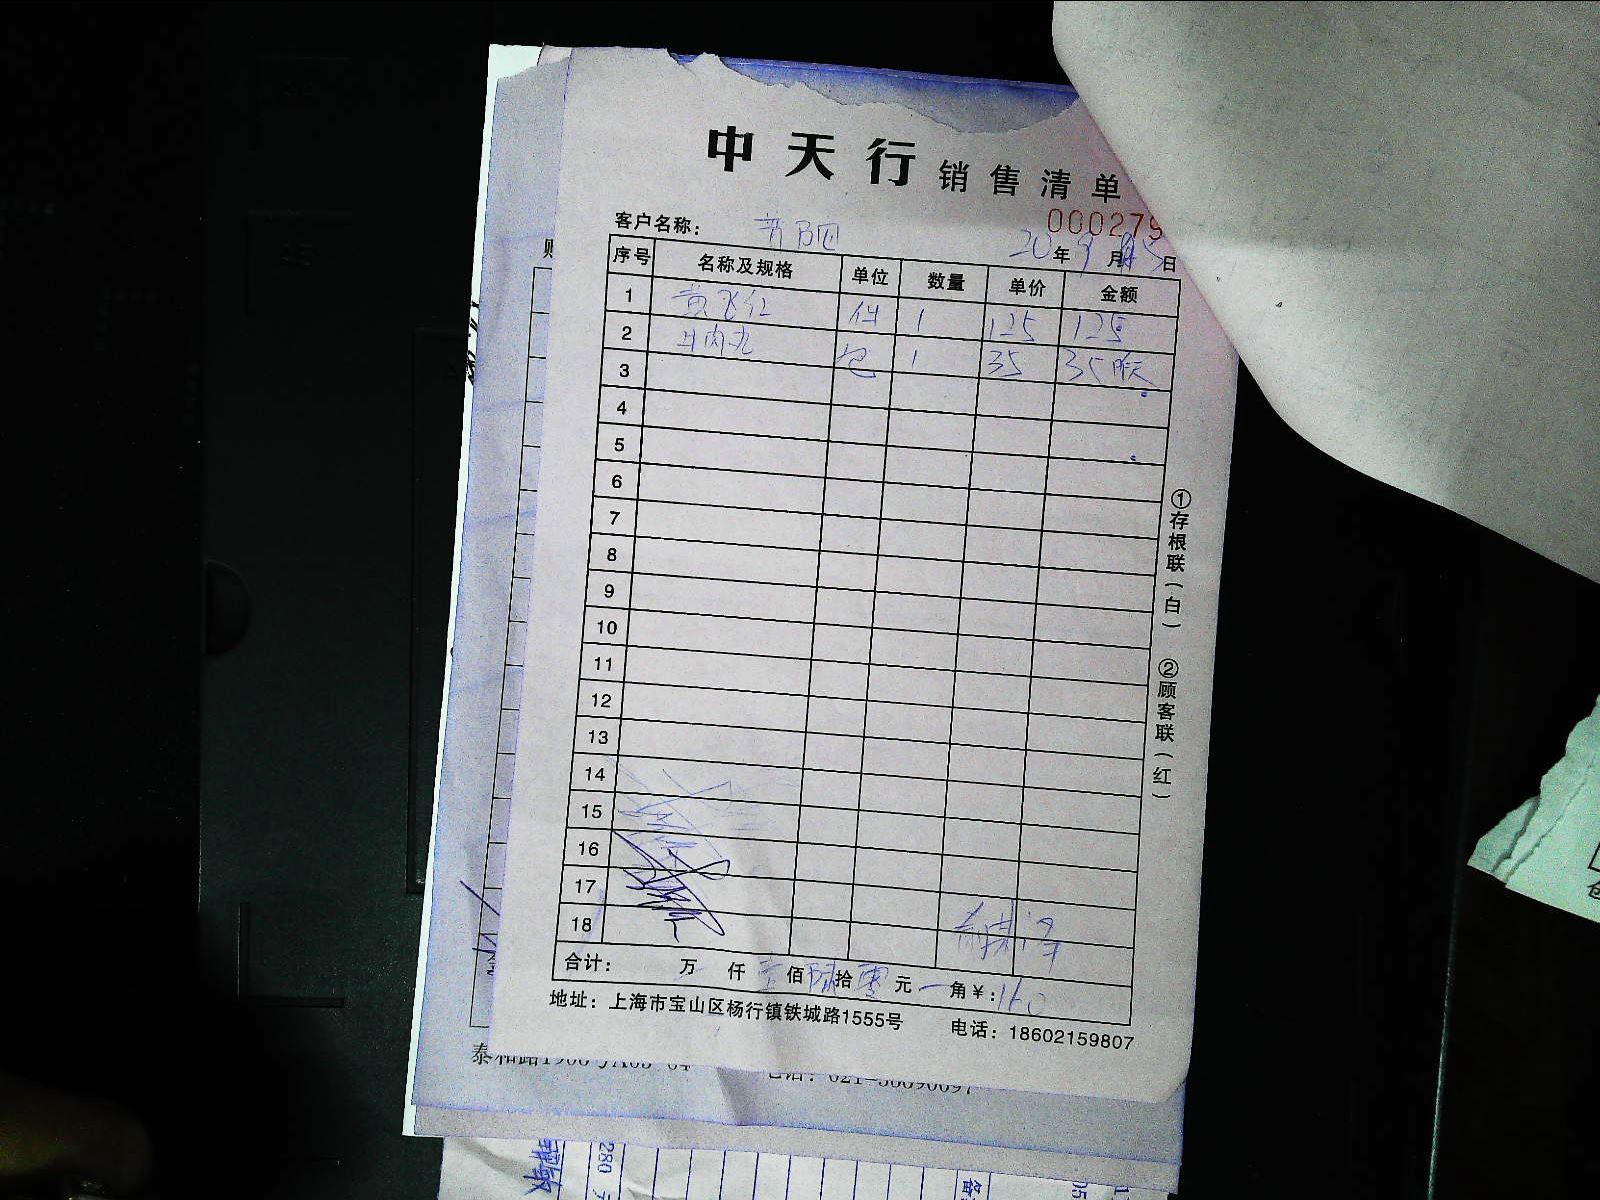 中天行 销售清单
000279
客户名称：
20年9月 5日
序号 名称及规格 单位 数量 单价 金额
1 黄飞红 件 1 125 125
2 牛肉丸 包 1 35 35
3
4
5
6
7
8
9
10
11
12
13
14
15
16
17
18
合计： 万 仟 壹佰 陆拾 零元 角 ¥：160
地址：上海市宝山区杨行镇铁城路1555号 电话：18602159807
①存根联（白） ②顾客联（红）
280 元